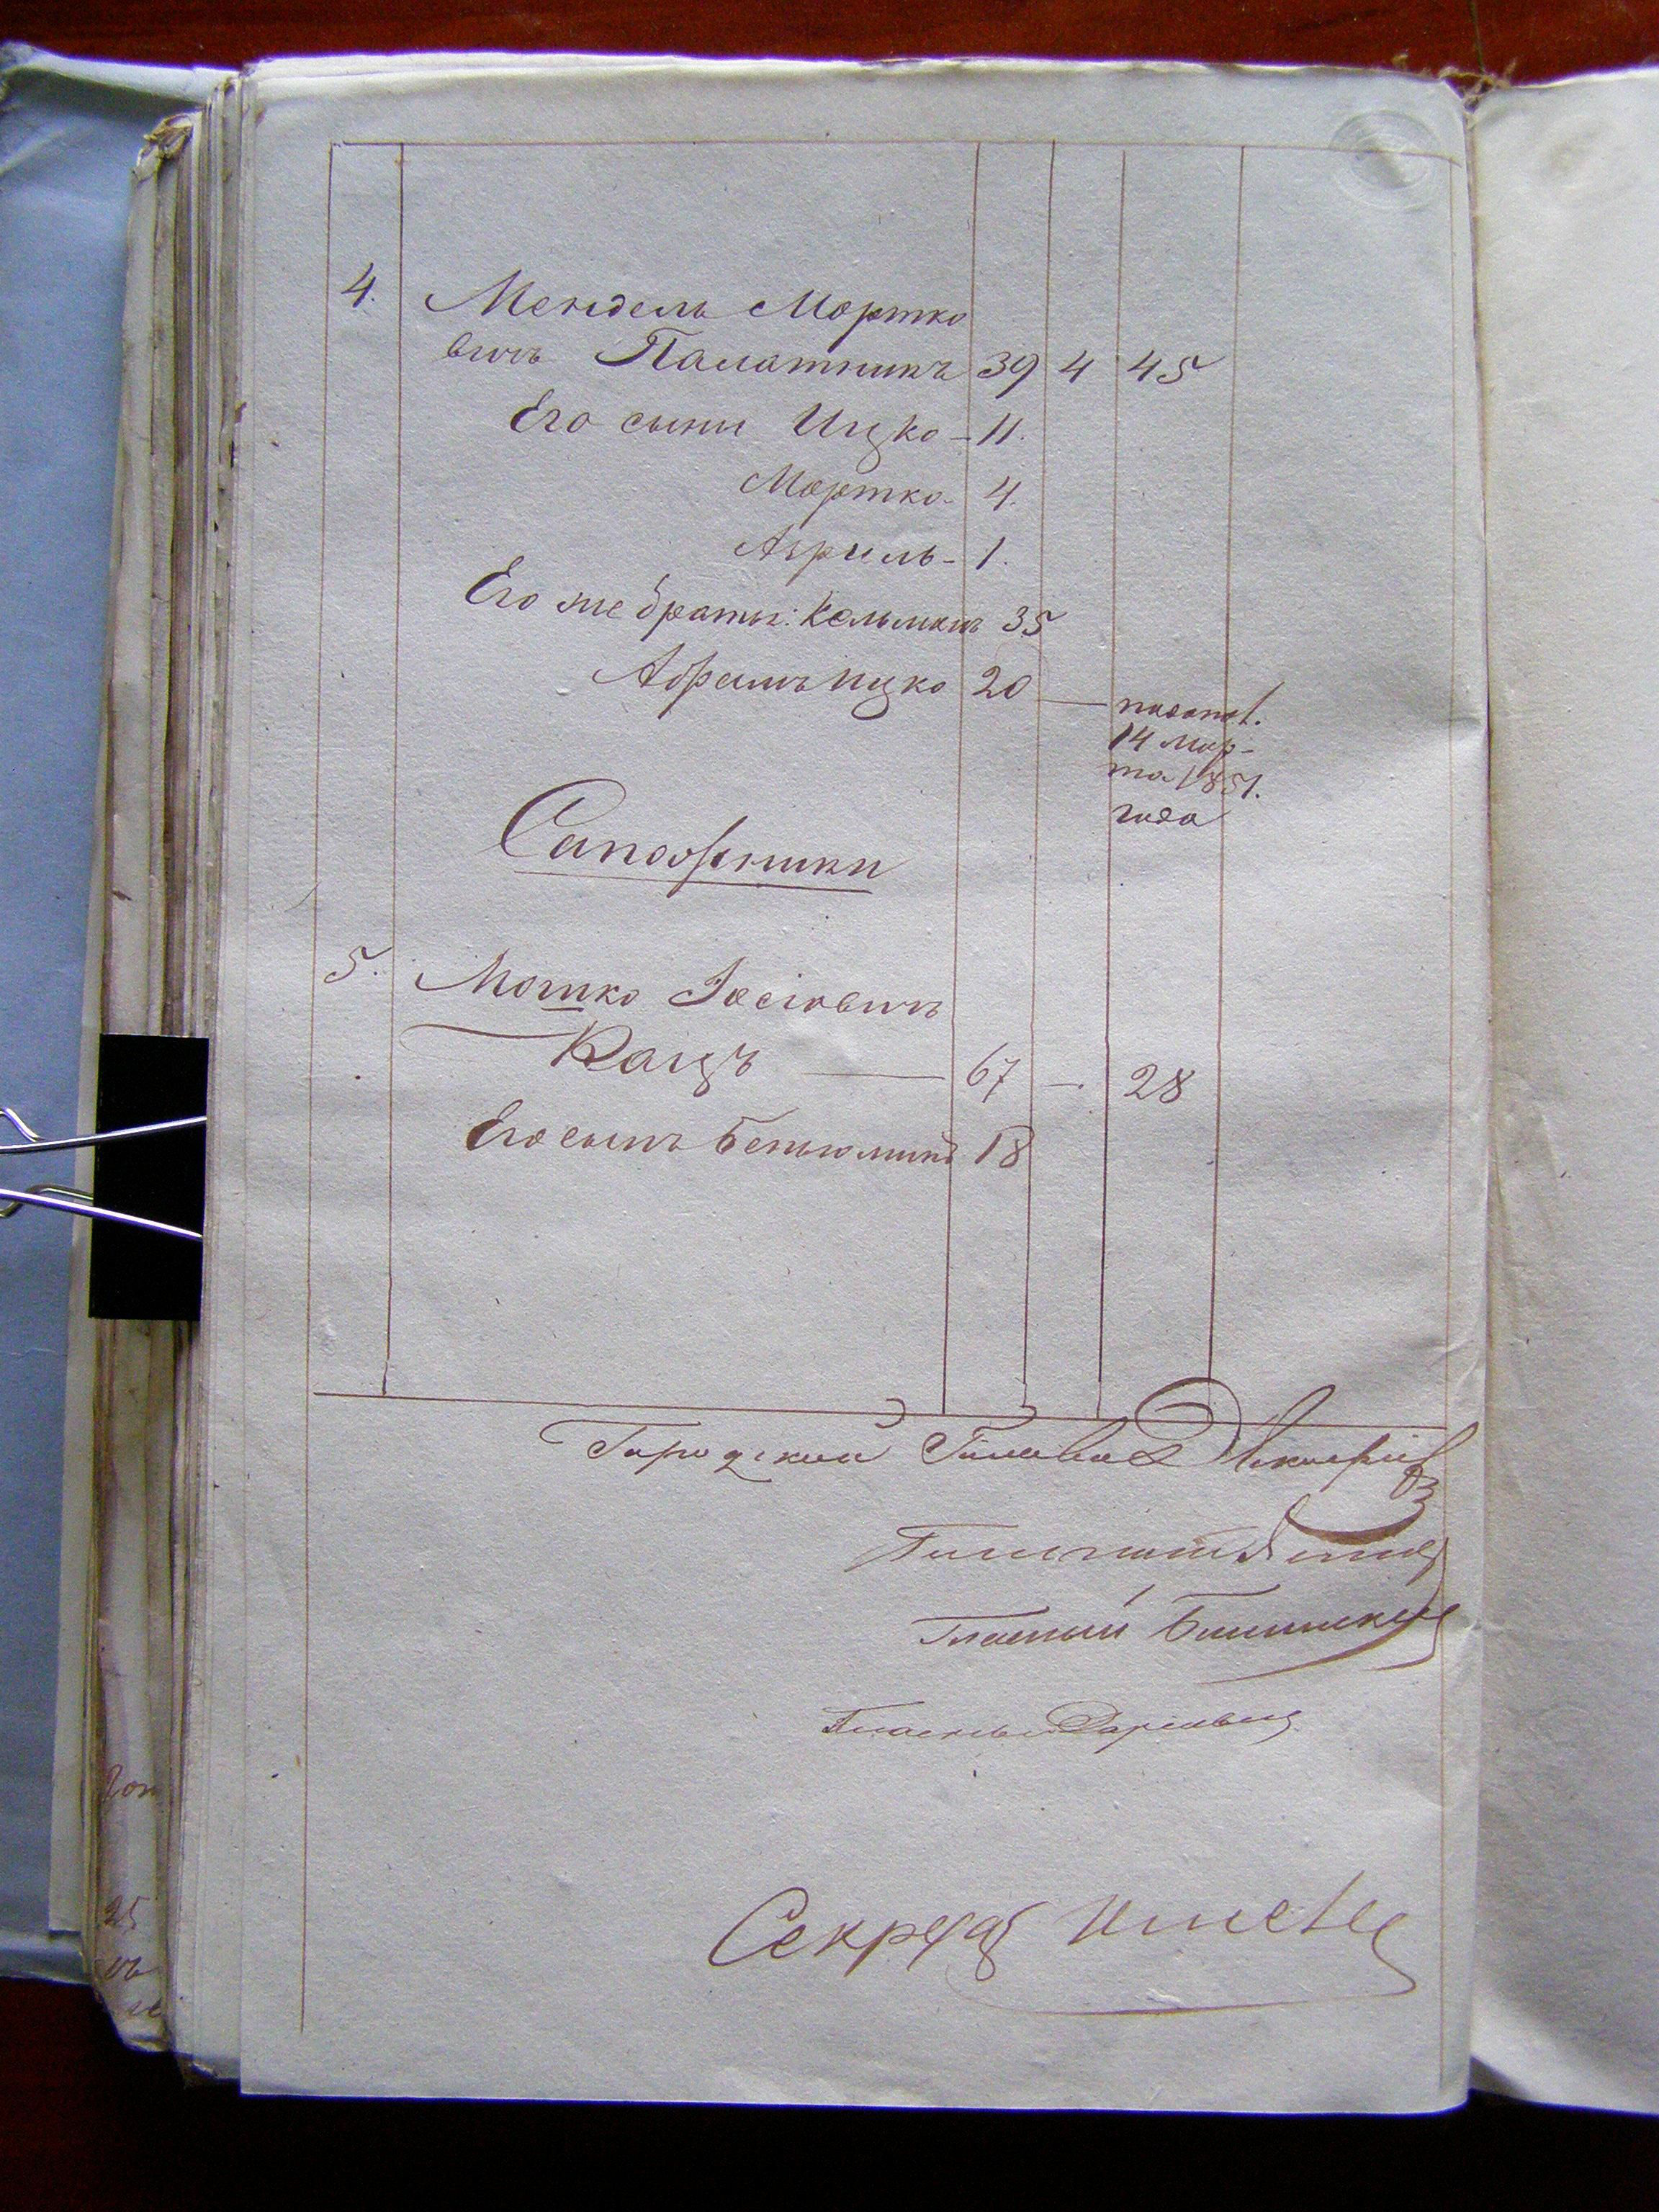 4. Мендель Мортко
вичъ Палатникъ 39 4 45
Его сыни Ицко - 11.
Мортко - 4.
Азриль - 1.
Его же браты: Кельманъ 35
Абрамъ Ицко 20
14 мар-
та 1851.
года
Сапожники
5. Мошко Іосіовичъ
Кацъ — 67 — 28
Его сынъ Беньюминъ 18
Городской Голова
Гласный
Гласный
Секретарь
25